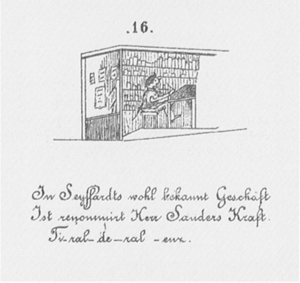 .16.
In Seyffardts wohl bekannt Geschäft
Ist renommirt Herr Sanders Kraft.
Ti-ral-de-ral-enz.